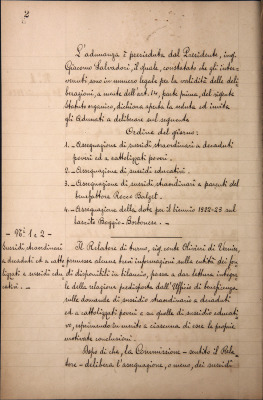 2
L'adunanza è presieduta dal Presidente, ing.
Giacomo Salvadori, il quale, constatato che gli inter-
venuti sono in numero legale per la validità delle deli-
berazioni, a mente dell'art. 14, parte prima, del vigente
Statuto organico, dichiara aperta la seduta ed invita
gli Adunati a deliberare sul seguente
Ordine del giorno:
1. - Assegnazione di sussidi straordinari a decaduti
poveri ed a cattolizzati poveri. -
2. - Assegnazione di sussidi educativi. -
3. - Assegnazione di sussidi straordinari a parenti del
benefattore Rocco
4. - Assegnazione della dote per il biennio 1922-23 sul
Lascito Baggio-
- Nⁱ 1 e 2 -
Sussidi straordinari
a decaduti ed a catto
lizzati e sussidi edu
cativi. -
Il Relatore di turno, sig. conte
premesse alcune brevi informazioni sulla entità dei fon-
di disponibili in bilancio, passa a dar lettura integra
le della relazione predisposta dall'Ufficio di beneficenza
sulle domande di sussidio straordinario a decaduti
ed a cattolizzati poveri e su quelle di sussidio educati
vo, esprimendo in merito a ciascuna di esse le proprie
motivate conclusioni.
Dopo di che, la Commissione - sentito il Rela-
tore - delibera l'assegnazione, o meno, dei sussidi